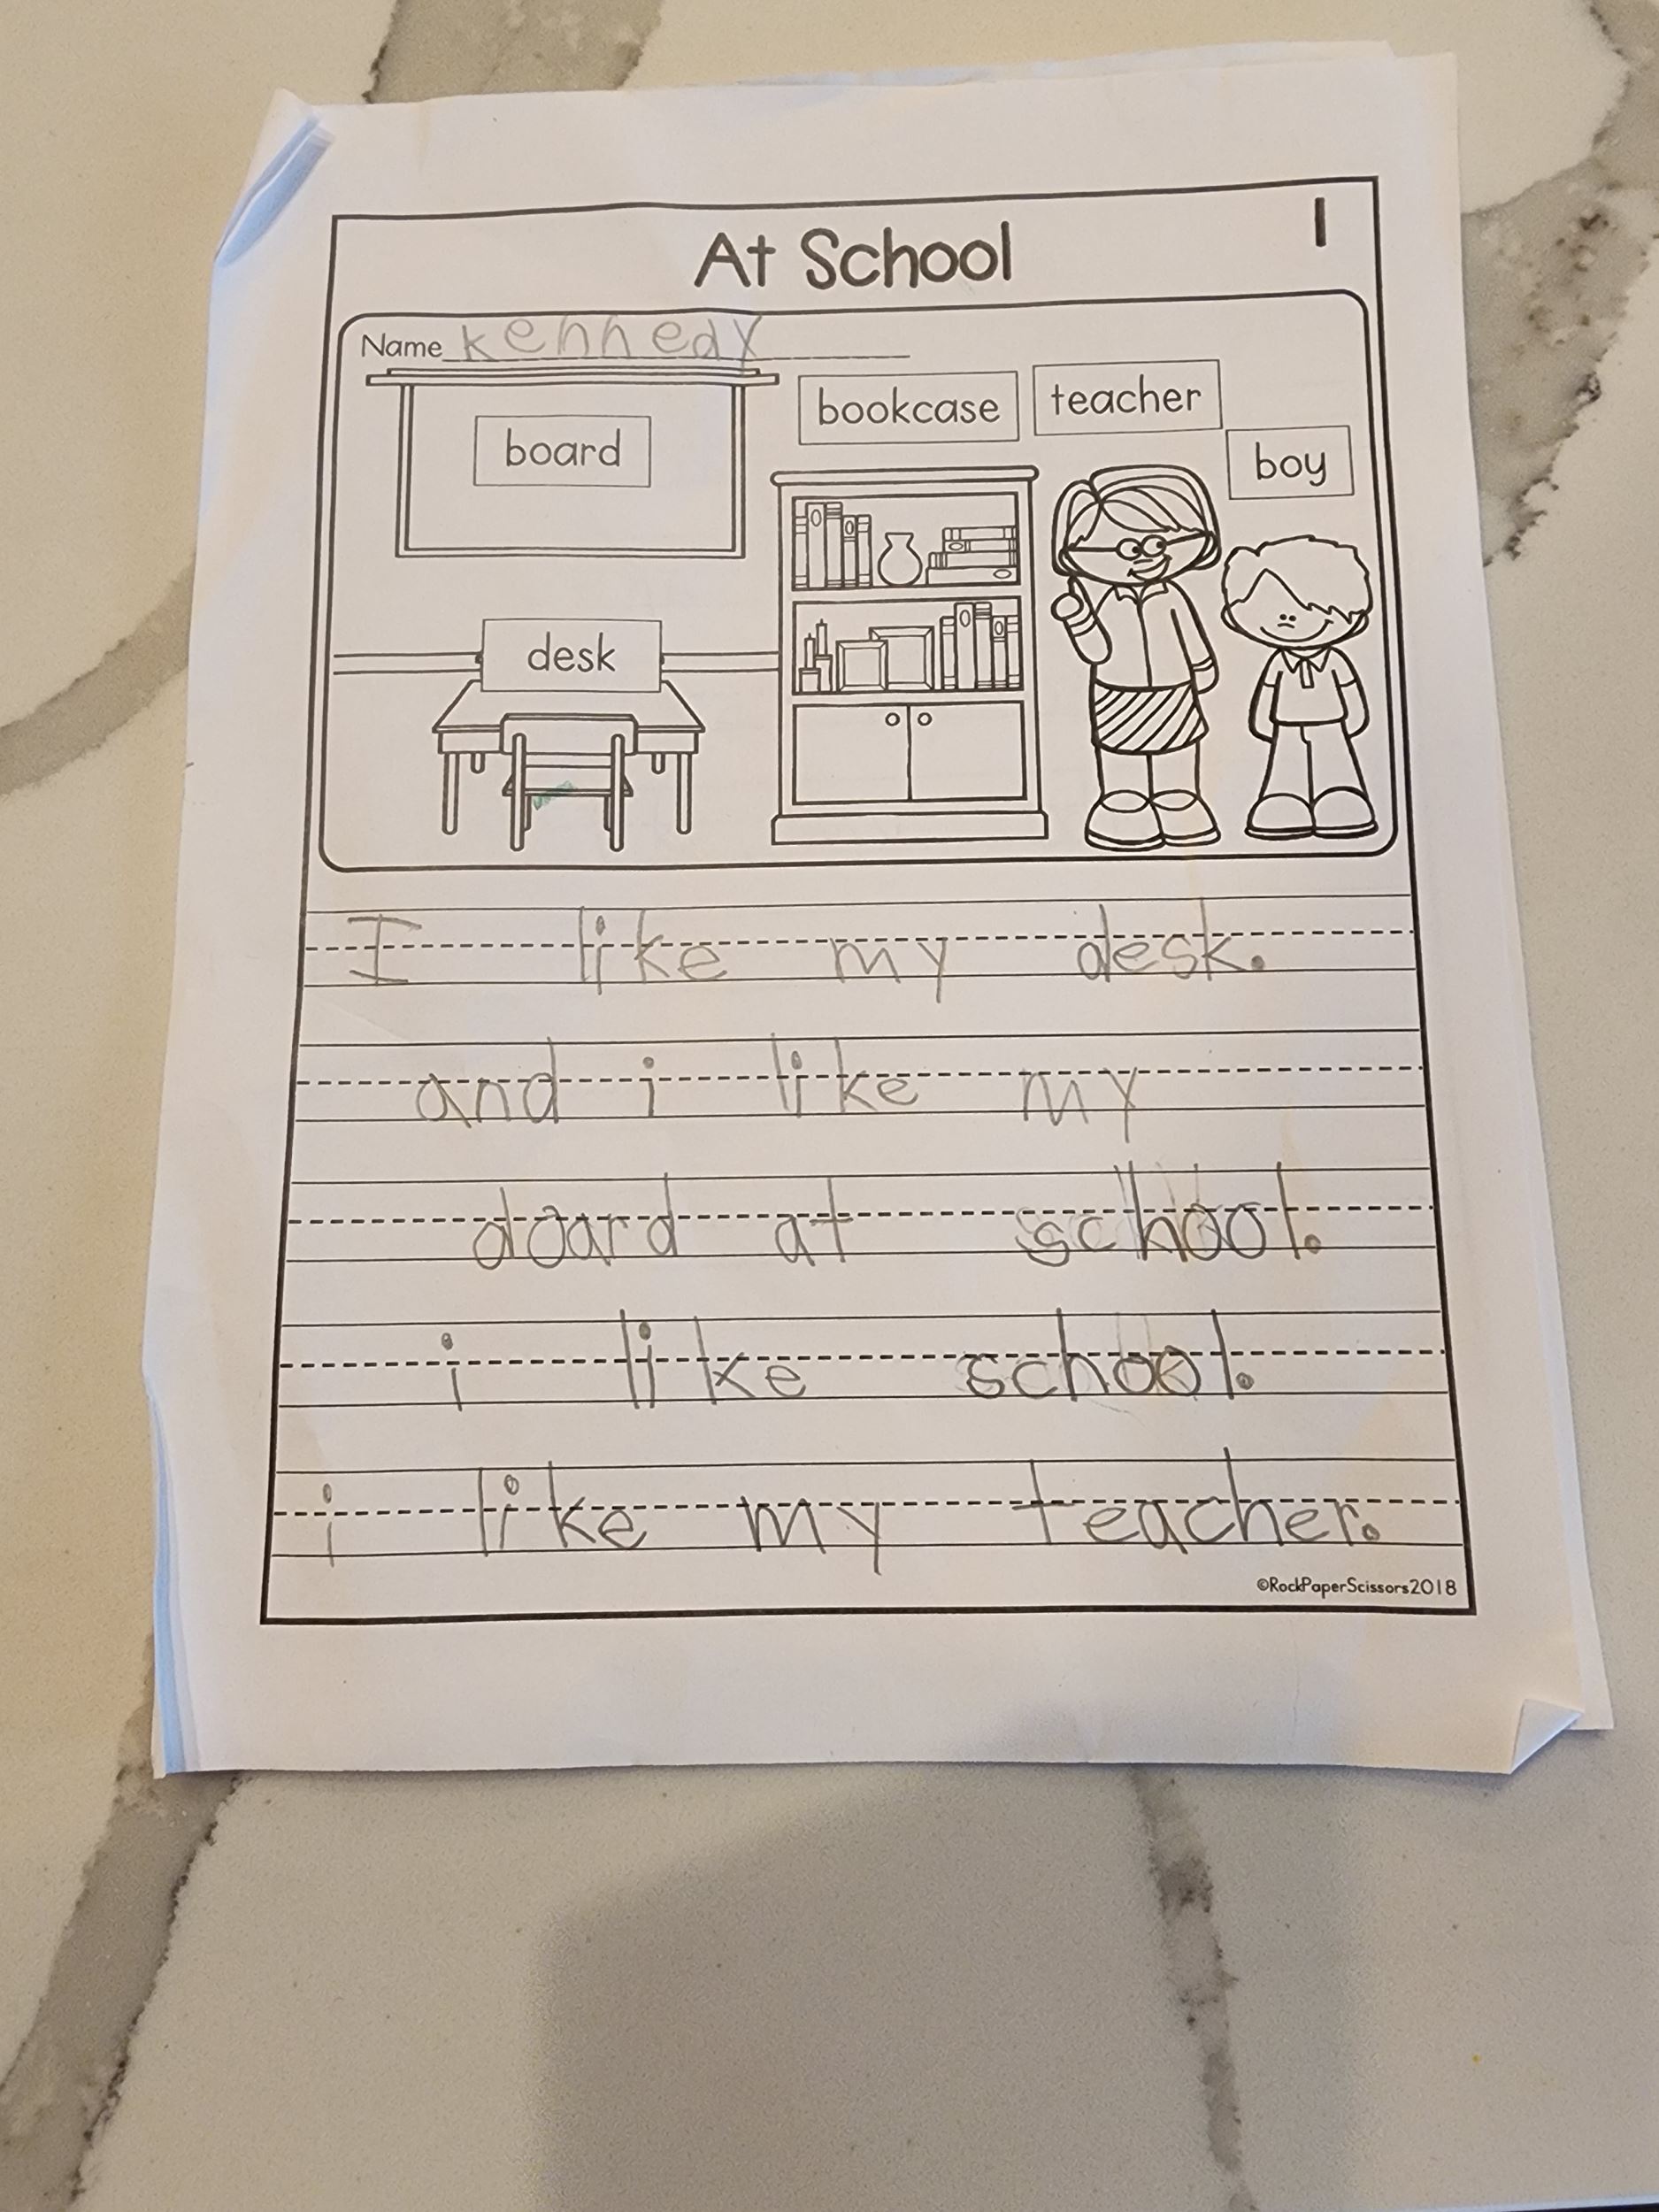 At School
1
Name kennedy
board
bookcase
teacher
boy
desk
I like my desk.
and i like my
doard at school.
i like school.
i like my teacher.
©RockPaperScissors2018